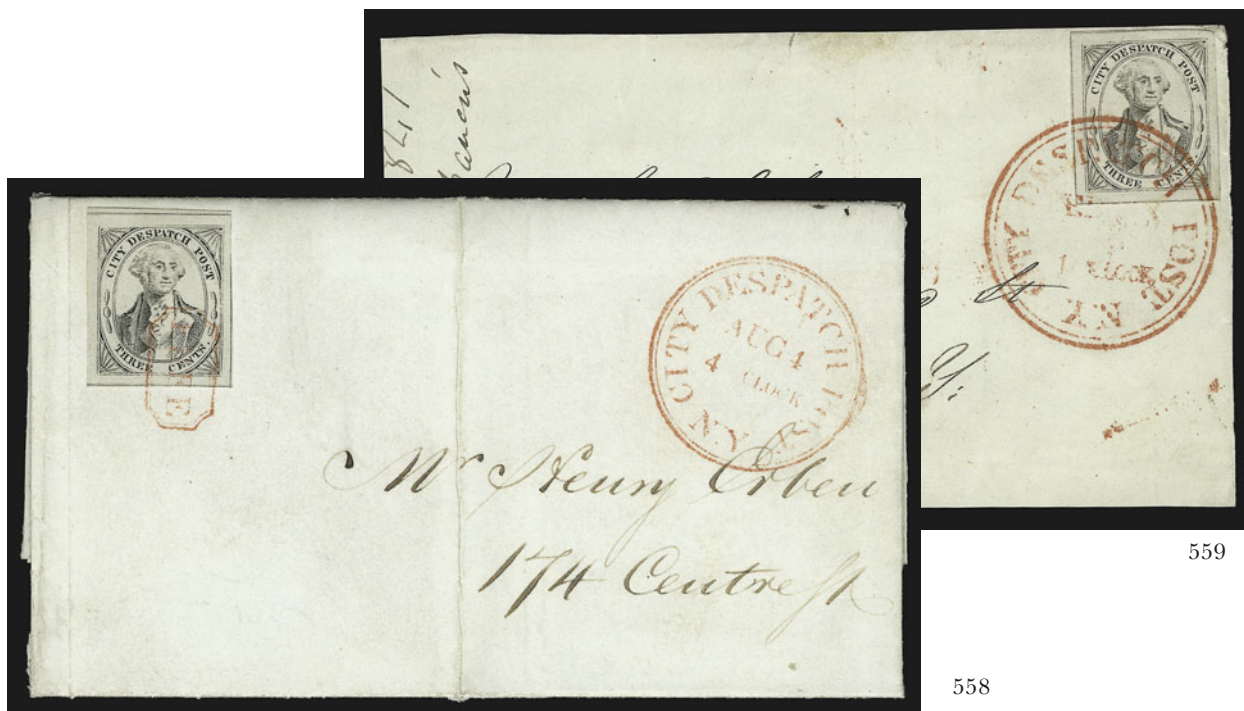 CITY DESPATCH POST
THREE CENTS
CITY DESPATCH POST N.Y.
CLOCK
559
CITY DESPATCH POST
THREE CENTS
CITY DESPATCH POST N.Y.
AUG 4
4 CLOCK
Mr Henry Erben
174 Centre St
558